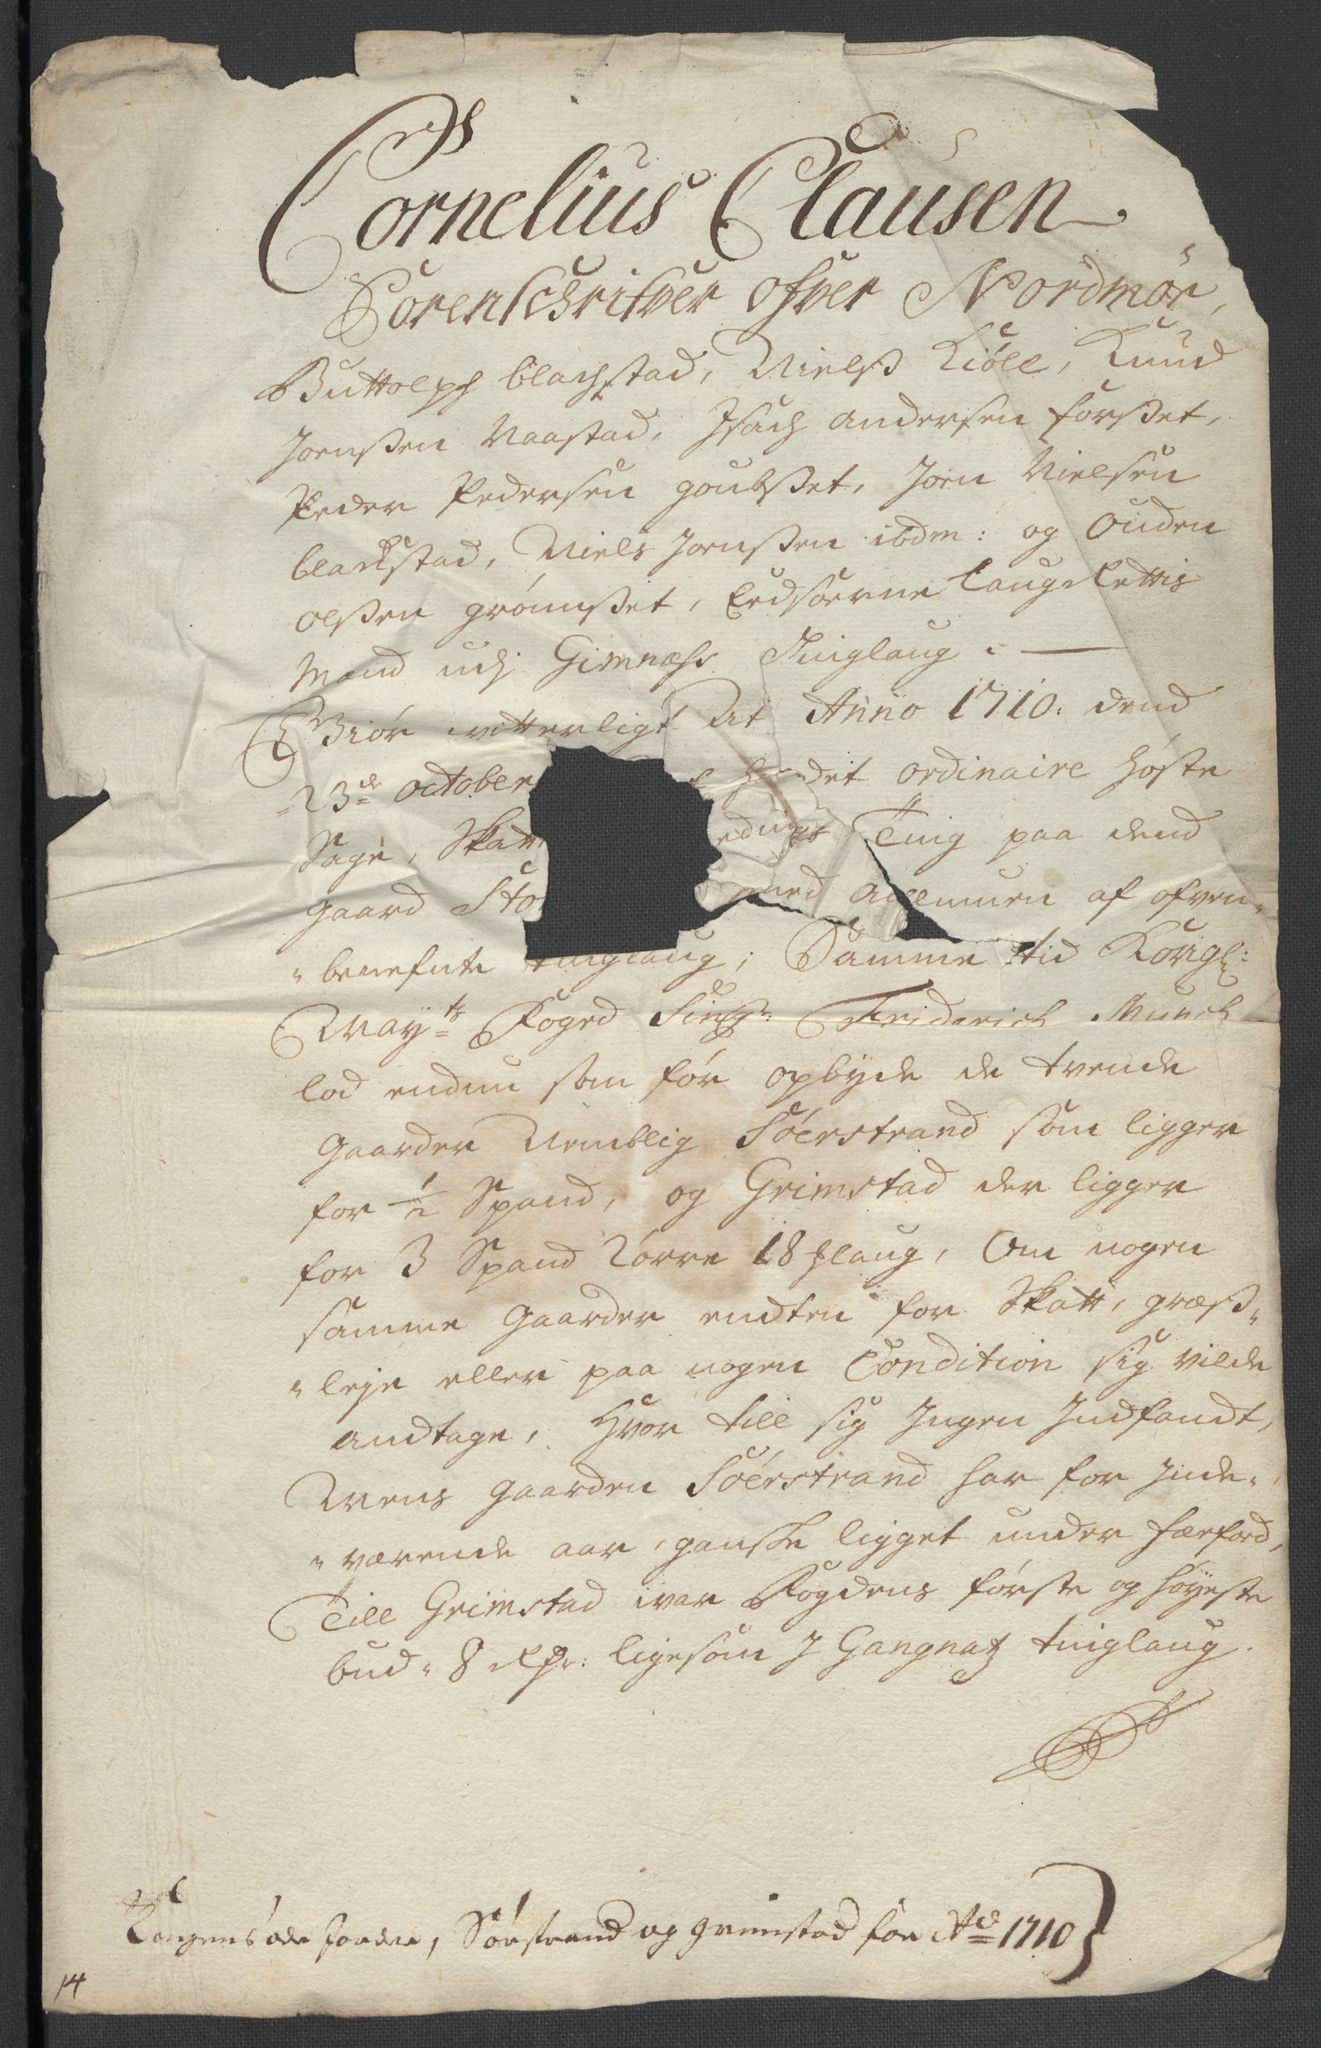 Cornelius Clausen
Sorenschrifver ofver Nordmør,
Buttolph blachstad, Nielß Kiöll, Knud
Jonßen Naastad, Isach Andersen forßet,
Peder Pedersen goulßet, Joen Nielsen
blackstad, Niels Jonßen ibdm: og Ouden
olßen grønnßet, Eedsorne Laugrettis
Mænd udj Gimnæhs Tinglaug. —
Giør vitterligt At Anno 1710. dend
23de october holdet ordinaire høste
Sage, Skatt Ting paa dend
gaard Sto med Allmuen af ofven-
-benefnte tinglaug; Samme tid Kongl:
Mayts Foged Sieg: Friderich Munch
lod endnu som før opbyde de tvende
gaarder Nemblig Söerstrand som ligger
for ½ Spand, og Grimstad der ligger
for 3 Spand Torre 18 Maug, Om nogen
samme gaarder endten for Skatt, græß-
-leje eller paa nogen Condition sig vilde
andtage, Hvor till sig Ingen Indfandt,
Mens gaarden Söerstrand har for Inde-
-værende aar ganske ligget under færford,
Till Grimstad war Fogdens første og høyeste
bud 8 ligesom J Gangnatz tinglaug.
Kongens øde Jorder, Sørstrand og grimstad for Ao 1710
14